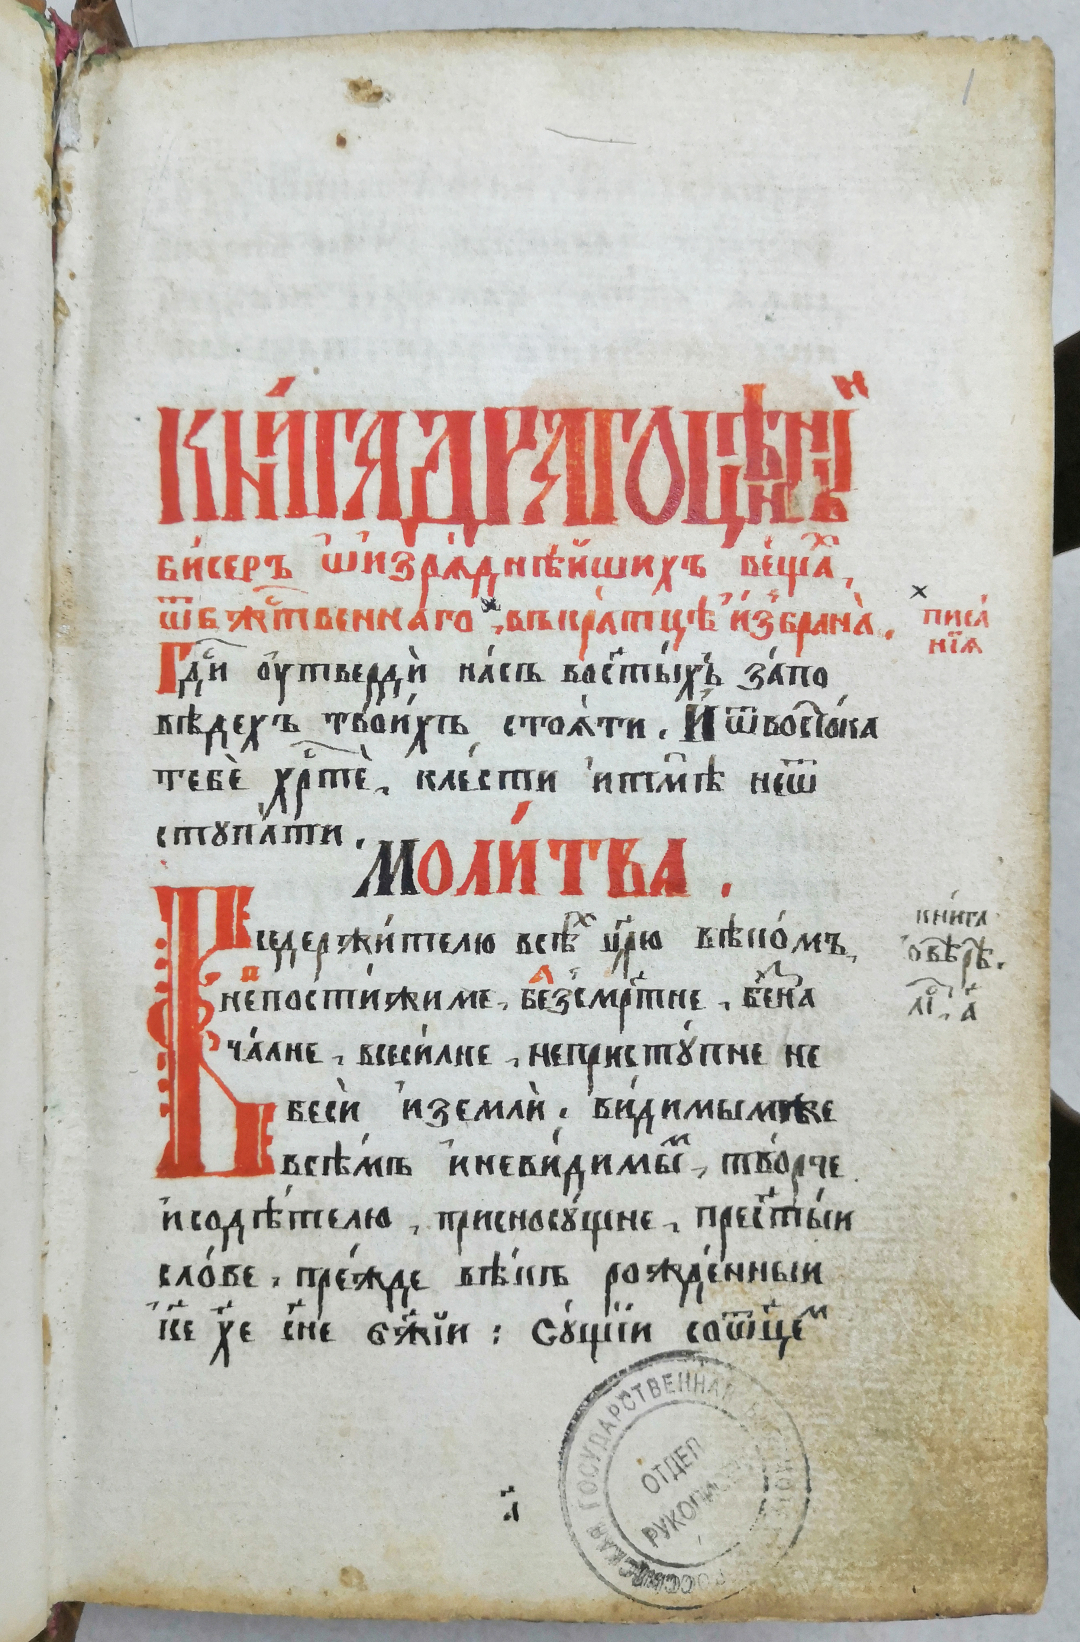 1
КНИ́ГА ДРАГОЦѢННІИ
би́серъ ѿ изрѧднѣ́йшихъ веща́х,
ѿ бж҃твеннаго, въкра́тцѣ и҆збрана̀.
писа́
нїѧ
Гдⷭ҇и ᲂу҆твердѝ на́съ во ст҃ы́хъ за́по
вѣдехъ твои́хъ стоѧ́ти. И҆ ѿ восто́ка
тебѐ хрⷭ҇тѐ, кле́сти и҆ тм҃ѣ не ѿ
ступа́ти.
МОЛИ́ТВА.
Вседержи́телю всѣ́х цр҃ю вѣко́мъ,
непости́жиме, безсме́ртне, безна
ча́лне, всеси́лне, непристу́пне не
бесѝ и҆ землѝ. ви́димымже
всѣ́мъ и҆ неви́димым, тво́рче
и҆ содѣ́телю, присносу́щне, прест҃ы́и
сло́ве, пре́жде вѣ́къ рожде́нныи
і҆с҃е хр҃е сн҃е бж҃їи: Су́щїи со ѿц҃ем
кни́га
о҆ вѣ́рѣ.
ли, а҃
а҃
РОССИЙСКАЯ ГОСУДАРСТВЕННАЯ БИБЛИОТЕКА
ОТДЕЛ
РУКОПИСЕЙ